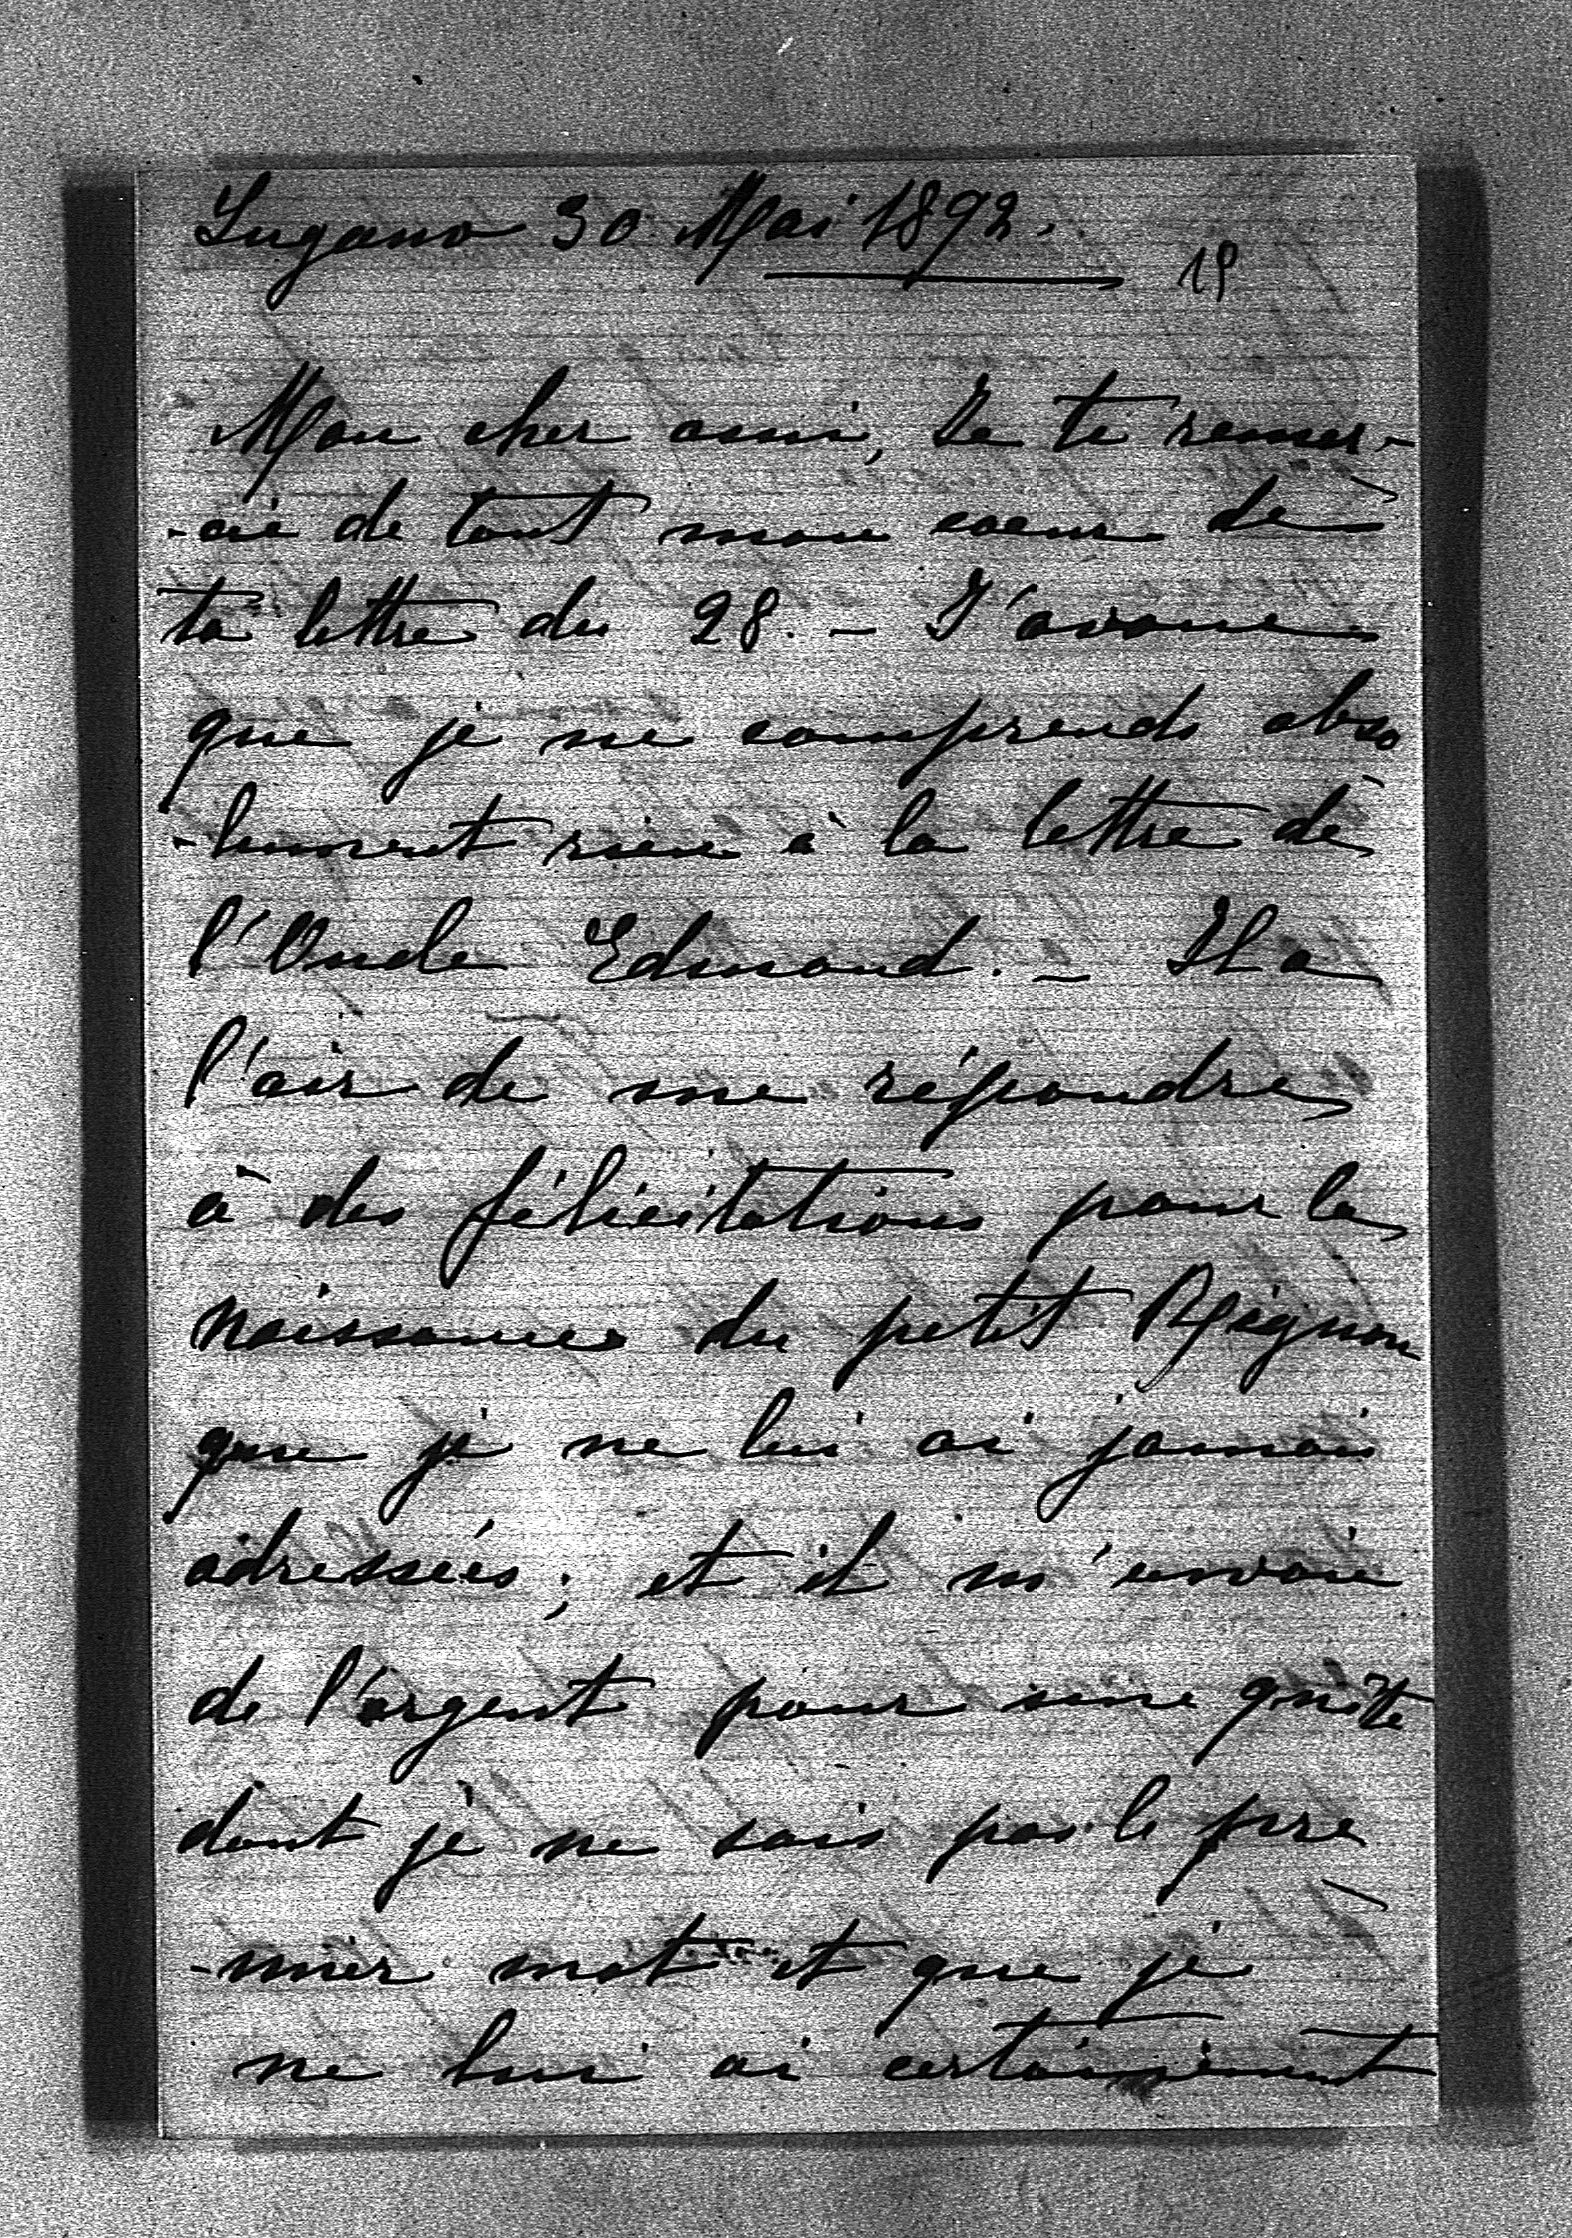 Lugano 30 Mai 1892.
19
Mon cher ami, Je te remer-
-cie de tout mon coeur de
ta lettre du 28. - J'avoue
que je ne comprends abso
-lument rien à la lettre de
l'Oncle Edmond. - Il a
l'air de me répondre
à des félicitations pour la
naissance du petit Mignon
que je ne lui ai jamais
adressées; et il m'envoie
de l'argent pour une quête
dont je ne sais pas le pre
-mier mot et que je
ne lui ai certainement